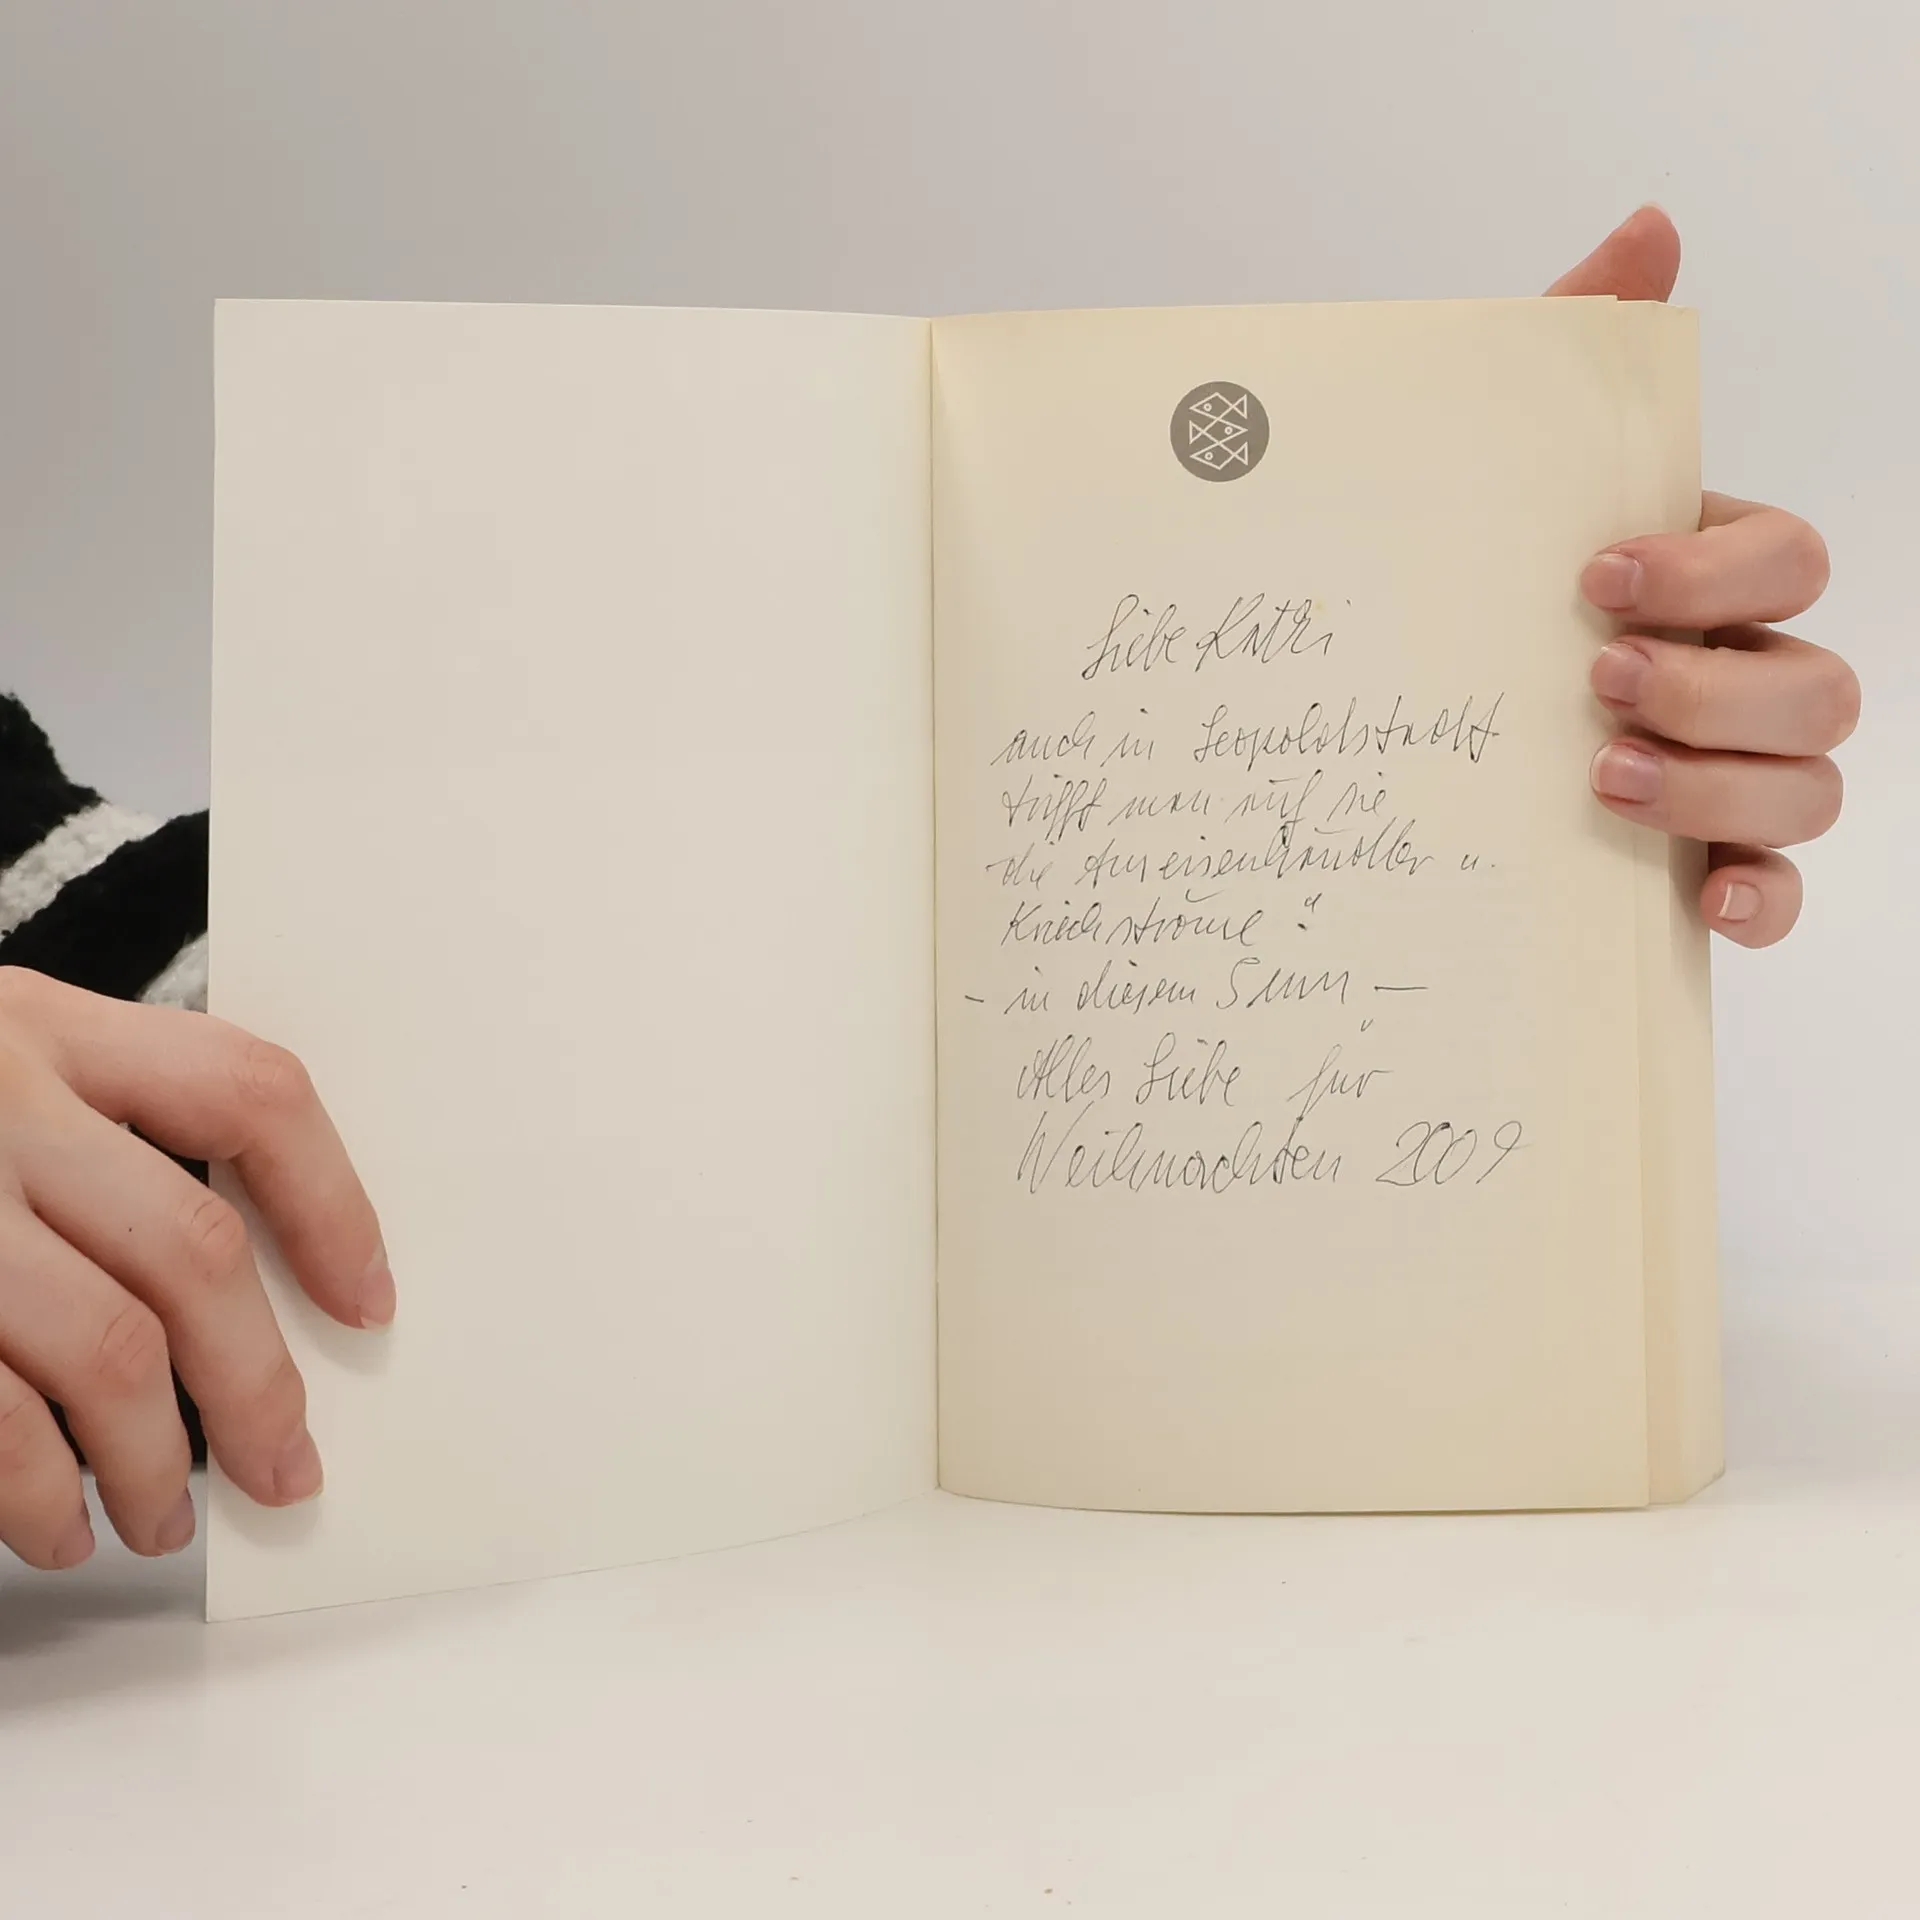 Liebe Kathi
auch in Leopoldstadt
trifft man auf sie
die Ameisenhändler u.
Kriechströme "
- in diesem Sinn —
Alles Liebe für
Weihnachten 2009